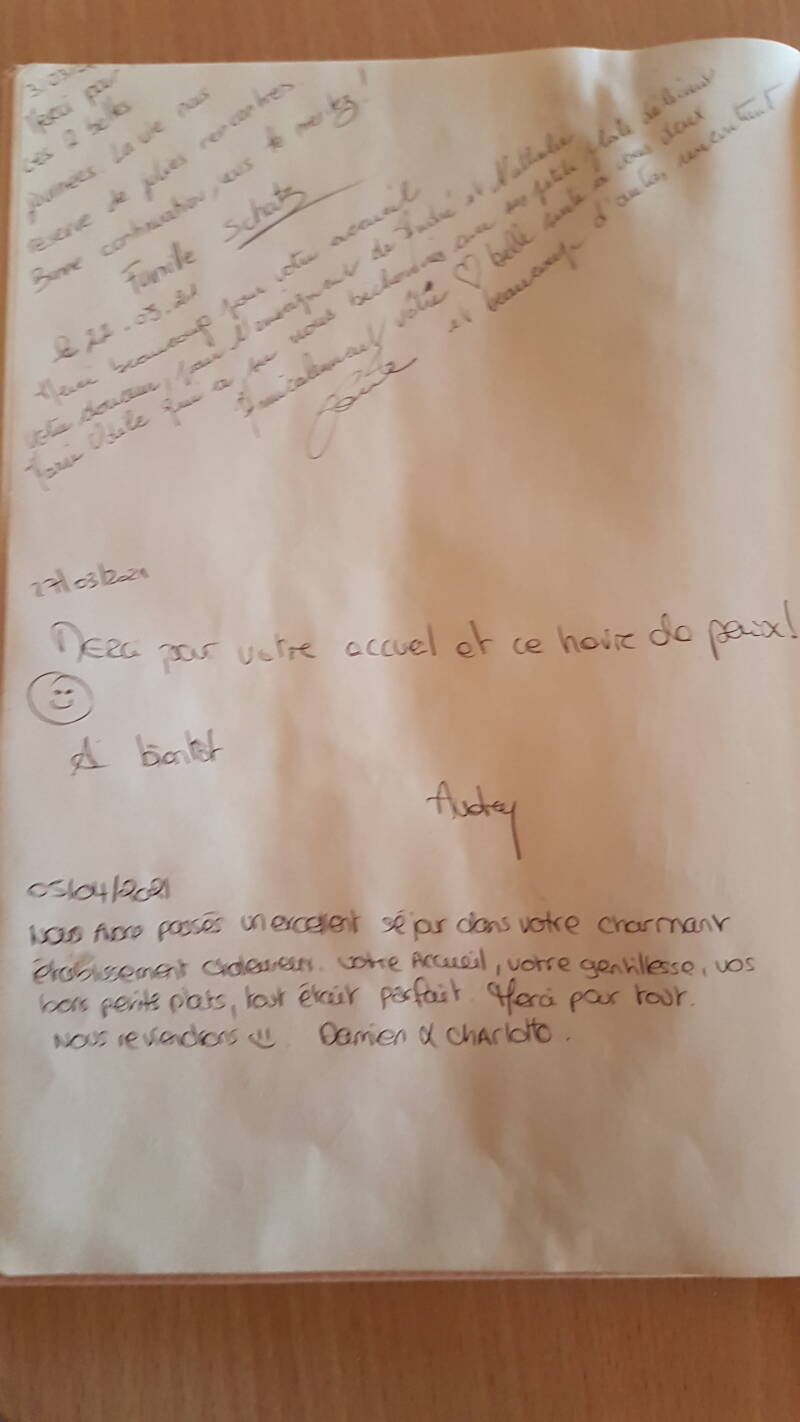 Merci pour
ces 2 belles
journées. La vie nous
réserve de jolies rencontres
Bonne continuation, vous le meritez!
Famille Schatz
le 22.03.21
Merci beaucoup pour votre accueil
votre douceur, pour
qui a su nous avec ses petits plats
Amicalement votre ♡ belle suite à vous deux
et beaucoup d'
27/03/2021
Merci pour votre accuel et ce havre de paix!
A bientôt
Audrey
05/04/2021
Nous avons passés un excellent séjour dans votre charmant
établissement chaleureux. Votre Accueil, votre gentillesse, vos
bons petits plats, tout était parfait. Merci pour tout.
Nous reviendrons Damien & Charlotte.